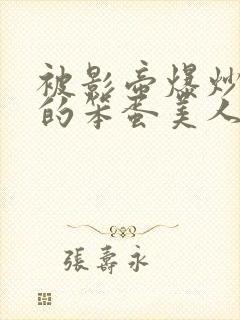 被影帝爆炒
的笨蛋美人
張壽永